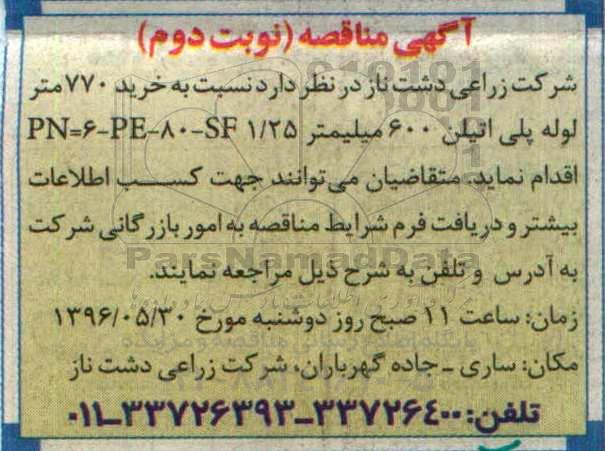 آگهی مناقصه (نوبت دوم)
شرکت زراعی دشت ناز در نظر دارد نسبت به خرید ۷۷۰ متر
لوله پلی اتیلن ۶۰۰ میلیمتر PN=۶-PE-۸۰-SF ۱/۲۵
اقدام نماید. متقاضیان می‌توانند جهت کسب اطلاعات
بیشتر و دریافت فرم شرایط مناقصه به امور بازرگانی شرکت
ParsNamadData
به آدرس و تلفن به شرح ذیل مراجعه نمایند.
زمان: ساعت ۱۱ صبح روز دوشنبه مورخ ۱۳۹۶/۰۵/۳۰
مکان: ساری ـ جاده گهرباران، شرکت زراعی دشت ناز
تلفن: ۳۳۷۲۶۴۰۰ـ۳۳۷۲۶۳۹۳ـ۰۱۱